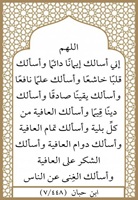 اللهم
إني أسألك إيمانًا دائمًا وأسألك
قلبًا خاشعًا وأسألك علمًا نافعًا
وأسألك يقينًا صادقًا وأسألك
دينًا قيمًا وأسألك العافية من
كل بلية وأسألك تمام العافية
وأسألك دوام العافية وأسألك
الشكر على العافية
وأسألك الغنى عن الناس
ابن حبان (٧/٤٤٨)